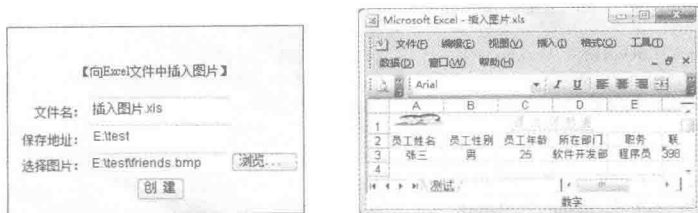 【向Excel文件中插入图片】
文件名： 插入图片.xls
保存地址： E:\test
选择图片： E:\test\friends.bmp 浏览...
创建
Microsoft Excel - 插入图片.xls
文件(F) 编辑(E) 视图(V) 插入(I) 格式(O) 工具(T)
数据(D) 窗口(W) 帮助(H)
Arial I U
A B C D E
1
2 员工姓名 员工性别 员工年龄 所在部门 职务 联
3 张三 男 25 软件开发部 程序员 398
4
测试
数字